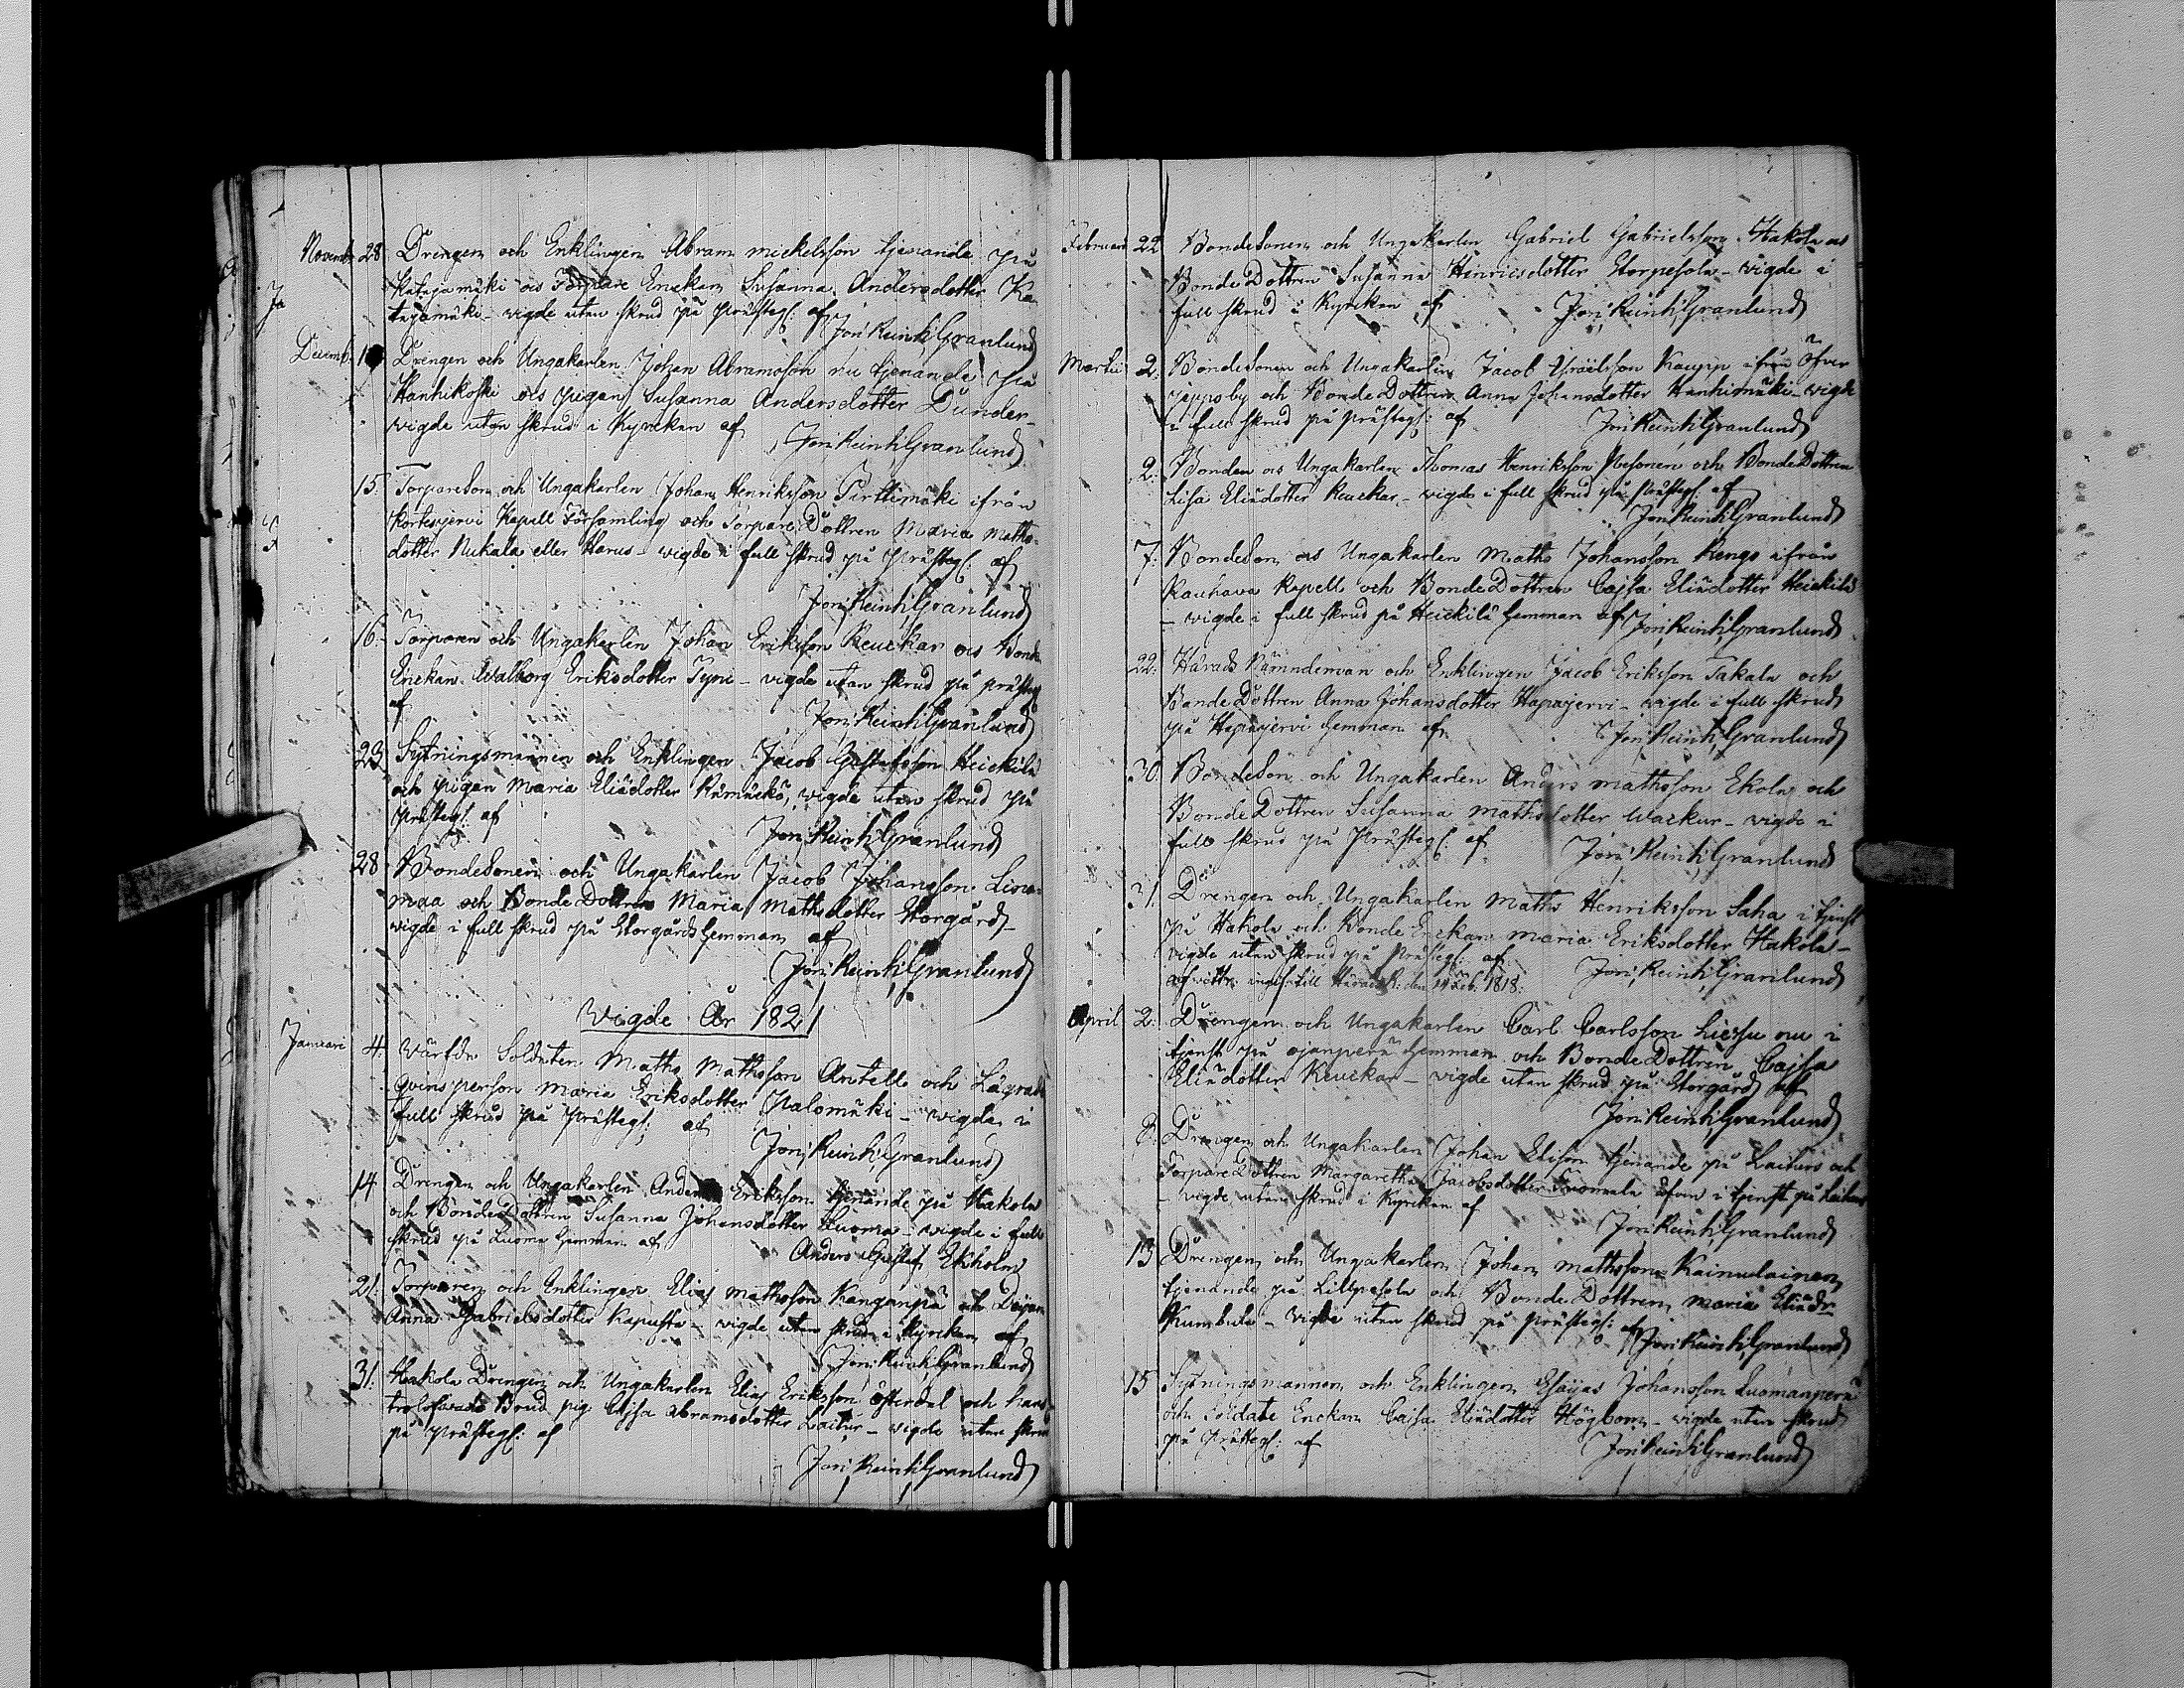 Novemb: 28 Drengen och Enklingen Abram Mickelsson tjenande på
Katajamäki ocs Torpare Enckan Susanna Andersdotter Ka-
tajamäki - vigde utan skrud på Prästeg: af
Jon: Reinh: Granlund
Decemb: Drengen och Ungakarlen Johan Abramsson nu tjenande på
Hanhikoski ocs pigan Susanna Andersdotter Dunder-
vigde utan skrud i Kyrckan af Jon: Reinh: Granlund
15: Torpareson och Ungakarlen Johan Henriksson Pirttimäki ifrån
Kortesjervi Kapell Församling och Torpare Dottren Maria Matts-
dotter Nukala eller Harus - vigde i full skrud på Prästeg: af
Jon: Reinh: Granlund
16: Torparen och Ungakarlen Johan Eriksson Keuckar ocs Bonde
Enckan Walborg Eriksdotter Tyni - vigde utan skrud på prästeg:
af
Jon: Reinh: Granlund
23 Sytningsmannen och Enklingen Jacob Gustafsson Heickilä
och pigan Maria Eliädotter Rämäckö, vigde utan skrud på
Prästeg: af
Jon: Reinh: Granlund
28 Bondesonen och Ungakarlen Jacob Johansson Linn-
maa och Bonde Dottren Maria Mathsdotter Storgård -
vigde i full skrud på Storgårds hemman af
Jon: Reinh: Granlund
Vigde År 1821
Januari 4: Wärfda Soldaten Maths Mathsson Antell och Lägrade
qvinsperson Maria Eriksdotter Palomäki - vigde i
full skrud på Prästeg: af
Jon: Reinh: Granlund
14 Drengen och Ungakarlen Anders Eriksson tjenande på Hakola
och Bonde Dottren Susanna Johansdotter Luoma - vigde i full
skrud på Luoma hemman af
Anders Gustaf Ekholm
21: Torparen och Enklingen Elias Mathsson Kanganpä och Dejan
Anna Gabrielsdotter Kapusta - vigde utan skrud i Kyrckan af
Jon: Reinh: Granlund
31: Hakola Drengen och Ungakarlen Elias Eriksson Österdal och hans
trolofvade Brud pig: Cajsa Abramsdotter Laitur - vigde utan skrud
på Prästeg: af
Jon: Reinh: Granlund
Februari 22 Bondesonen och Ungakarlen Gabriel Gabrielsson Hakola ocs
Bonde Dottren Susanna Henricsdotter Storpesola - vigde i
full skrud i Kyrckan af Jon: Reinh: Granlund
Martii 2: Bondesonen och Ungakarlen Jacob Israelsson Kaupp ifrån Öfver
jeppoby och Bonde Dottren Anna Johansdotter Hanhimäki - vigde
i full skrud på Prästeg: af Jon: Reinh: Granlund
2: Bonden ocs Ungakarlen Thomas Henriksson Pesonen och Bonde Dottren
Lisa Eliädotter Keuckar - vigde i full skrud på Prästeg: af
Jon: Reinh: Granlund
7: Bondeson ocs Ungakarlen Maths Johansson Rengo ifrån
Kauhava Kapell och Bonde Dottren Cajsa Eliädotter Heickilä
- vigde i full skrud på Heickilä hemman af Jon: Reinh: Granlund
22: Härads Nämndeman och Enklingen Jacob Eriksson Takala och
Bonde Dottren Anna Johansdotter Hapajervi - vigde i full skrud
på Hapajervi hemman af Jon: Reinh: Granlund
30: Bondeson och Ungakarlen Anders Mathsson Ekola och
Bonde Dottren Susanna Mathsdotter Wackur - vigde i
full skrud på Prästeg: af Jon: Reinh: Granlund
31. Drengen och Ungakarlen Maths Henriksson Saha i tjenst
på Hakola och Bonde Enckan Maria Eriksdotter Hakola -
vigde utan skrud på Prästeg: af
Jon: Reinh: Granlund
afvittr: till Härads R: den 14 Feb: 1818:
April 2: Drengen och Ungakarlen Carl Carlsson Liessu nu i
tjenst på Ojanperä hemman och Bonde Dottren Cajsa
Eliädotter Keuckar - vigde utan skrud på Storgård af
Jon: Reinh: Granlund
8: Drengen och Ungakarlen Johan Elisson tjenande på Laiturs och
Torpare Dottren Margaretha Jacobsdotter Tuomala äfven i tjenst på Laiturs
- vigde utan skrud i Kyrckan af
Jon: Reinh: Granlund
13 Drengen och Ungakarlen Johan Mathsson Kainulainen
tjenande på Lillpesola och Bonde Dottren Maria Eliädr
Kumbula - vigde utan skrud på Prästeg: af
Jon: Reinh: Granlund
15 Sytningsmannen och Enklingen Esaijas Johansson Luomanperä
och Soldate Enckan Caisa Eliädotter Högbom - vigde utan skrud
på Prästeg: af
Jon: Reinh: Granlund